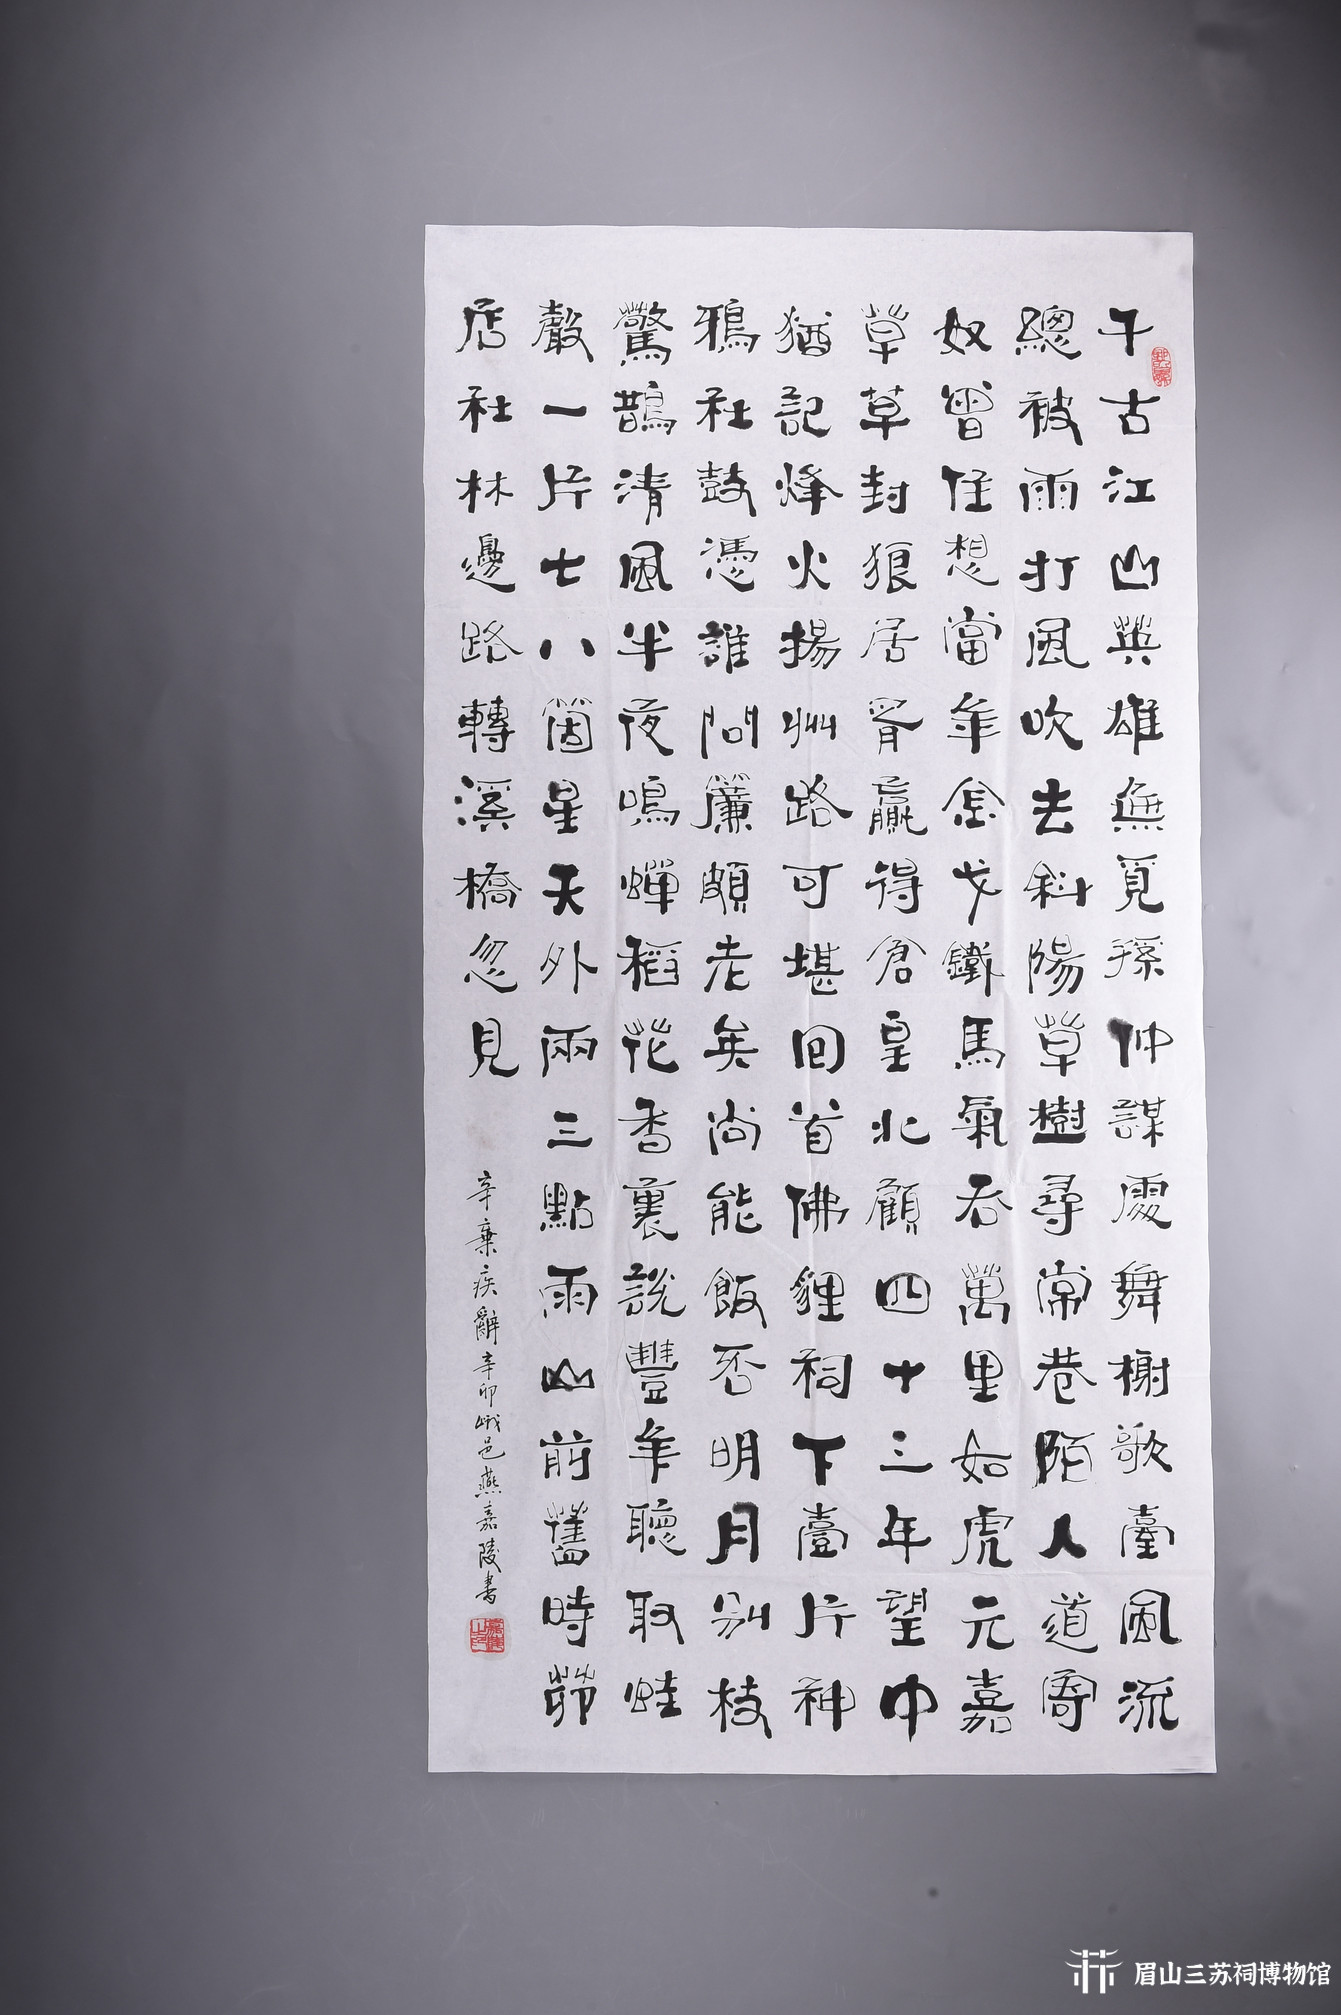 千古江山英雄無覓孫仲謀處舞榭歌臺風流
總被雨打風吹去斜陽草樹尋常巷陌人道寄
奴曾住想當年金戈鐵馬氣吞萬里如虎元嘉
草草封狼居胥贏得倉皇北顧四十三年望中
猶記烽火揚州路可堪回首佛貍祠下壹片神
鴉社鼓憑誰問簾頗老矣尚能飯否明月別枝
驚鵲清風半夜鳴蟬稻花香裏說豐年聽取蛙
聲一片七八箇星天外兩三點雨山前舊時茆
店社林邊路轉溪橋忽見
辛棄疾辭辛卯峨邑燕嘉陵書
眉山三苏祠博物馆